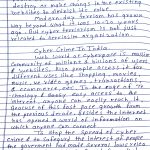 destroy or make changes in the existing
websites to diminish its role.
Modern day terrorism has grown
way beyond what it was 10-20 years
ago. And cyber terrorism is not just
related to terrorism organisation.
Cyber Crime In India
web world or cyberspace is massive
community of millions & billions of users
& websites. Also people access it for
different uses like shopping, movies,
music, video games, transactions,
& e-commerce, etc. In the age of
technology & easy access to the
internet, anyone can easily reach it.
Because of this fast pace growth from
the previous decade. Besides, the internet
has opened a world of information on
which anyone can connect.
To stop the spread of cyber
crime & safeguard the interest of people
the government had made several laws related